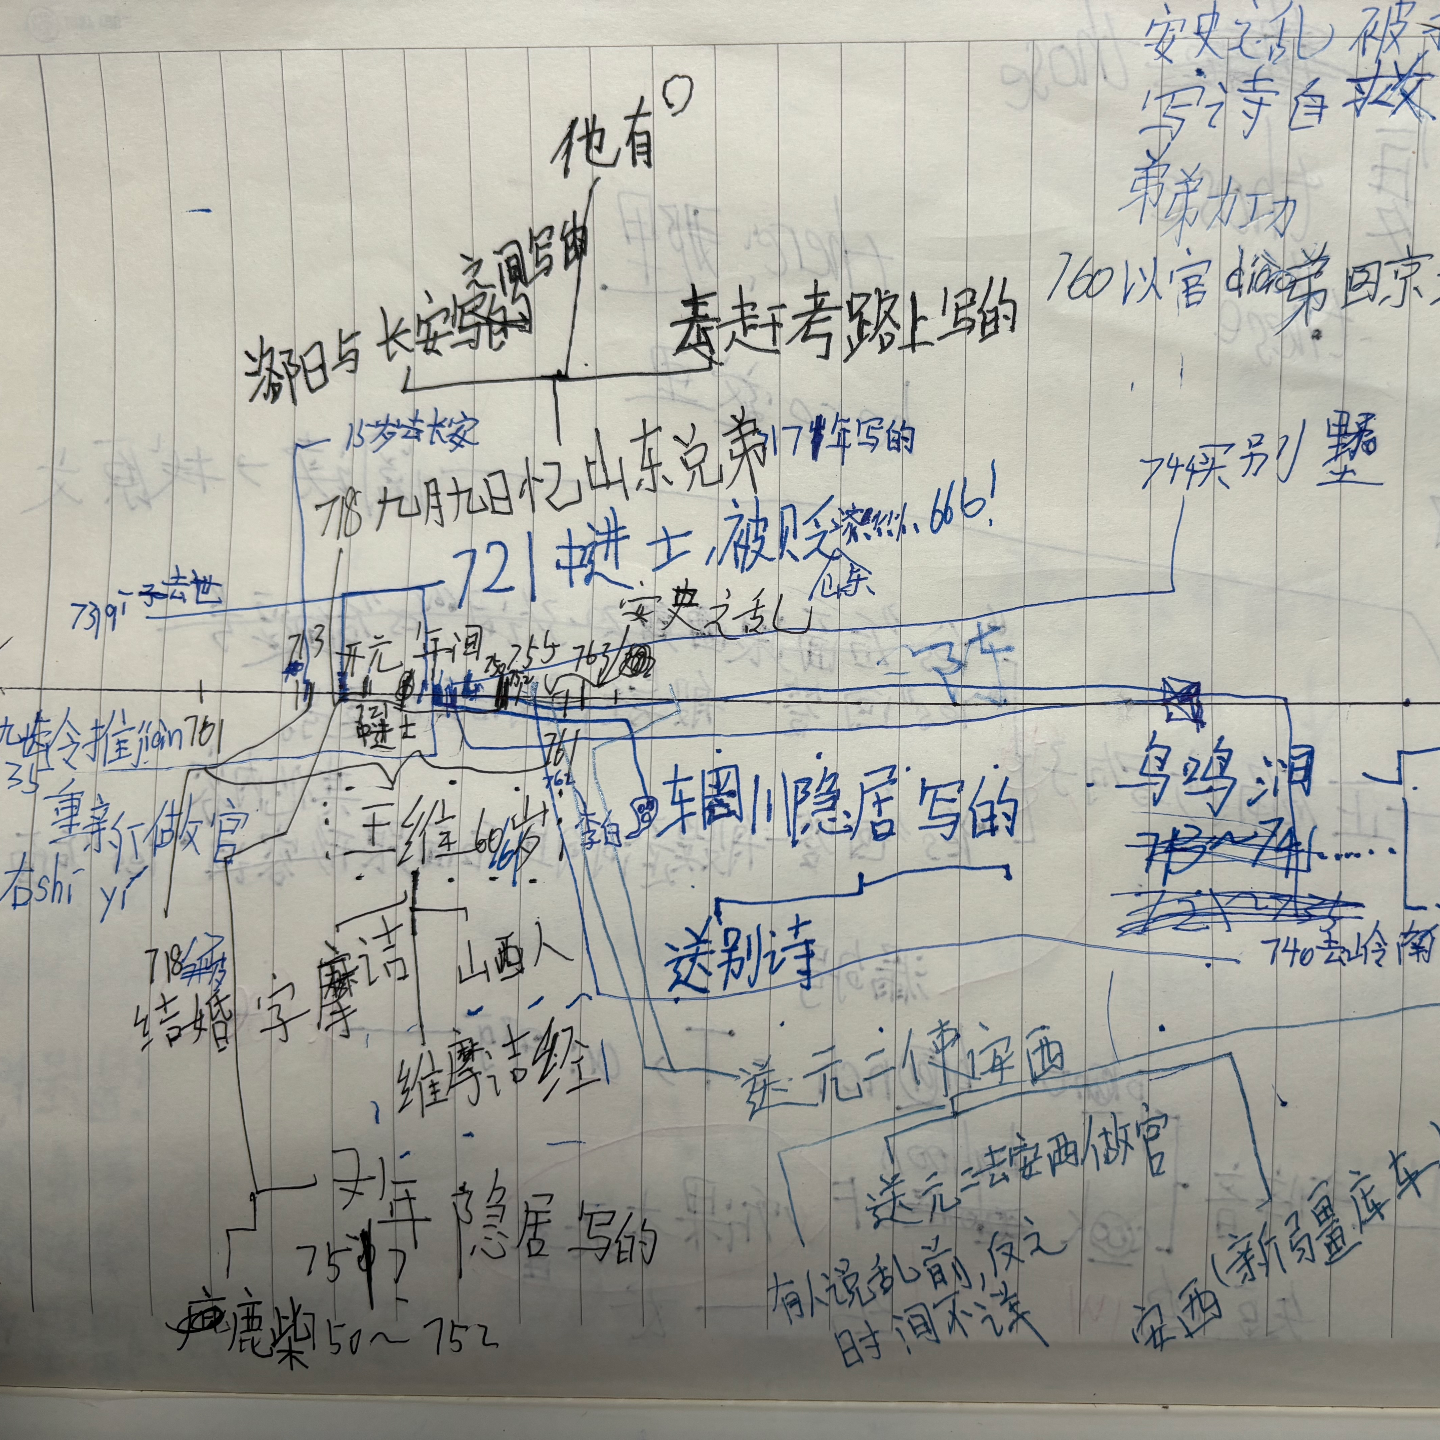 安史之乱 被
写诗自救
弟弟力功
760以官 弟 回京
他有
之间写的
洛阳与长安写的
去赶考路上写的
15岁去长安
718九月九日忆山东兄弟 17年写的
744买别墅
721中进士,被贬 666!
山东
安史之乱
739 子去世
713 开元 年间 755 763
下车
721
中进士
九龄令推jian 761
35
重新 做官
右shi yi
761
762
王维60岁
61
李白
车罔川隐居写的
鸟鸣涧
713~741......
送别诗
740去岭南
718
结婚
字摩诘
山西人
维摩诘经
送元二使安西
送元二去安西做官
又年隐居写的
75 ?
有人说乱前,反之
时间不详
安西(新疆库车)
鹿柴750~752